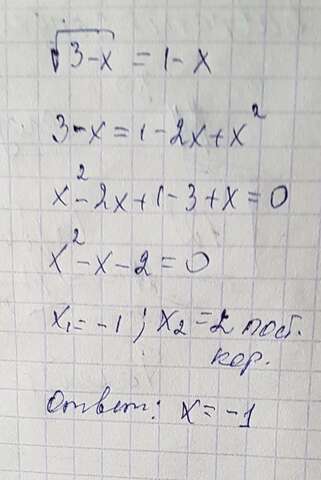 √3-x = 1-x
3-x=1-2x+x²
x²-2x+1-3+x=0
x²-x-2=0
x₁=-1; x₂=2 пост.
кор.
Ответ: x=-1